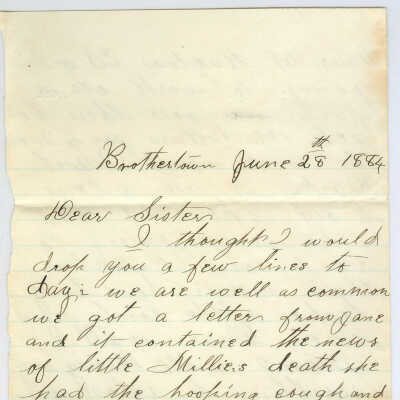 Brothertown June 28th 1884
Dear Sister
I thought I would
drop you a few lines to
day; we are well as common
we got a letter from Jane
and it contained the news
of little Millie,s death she
had the hooping cough and